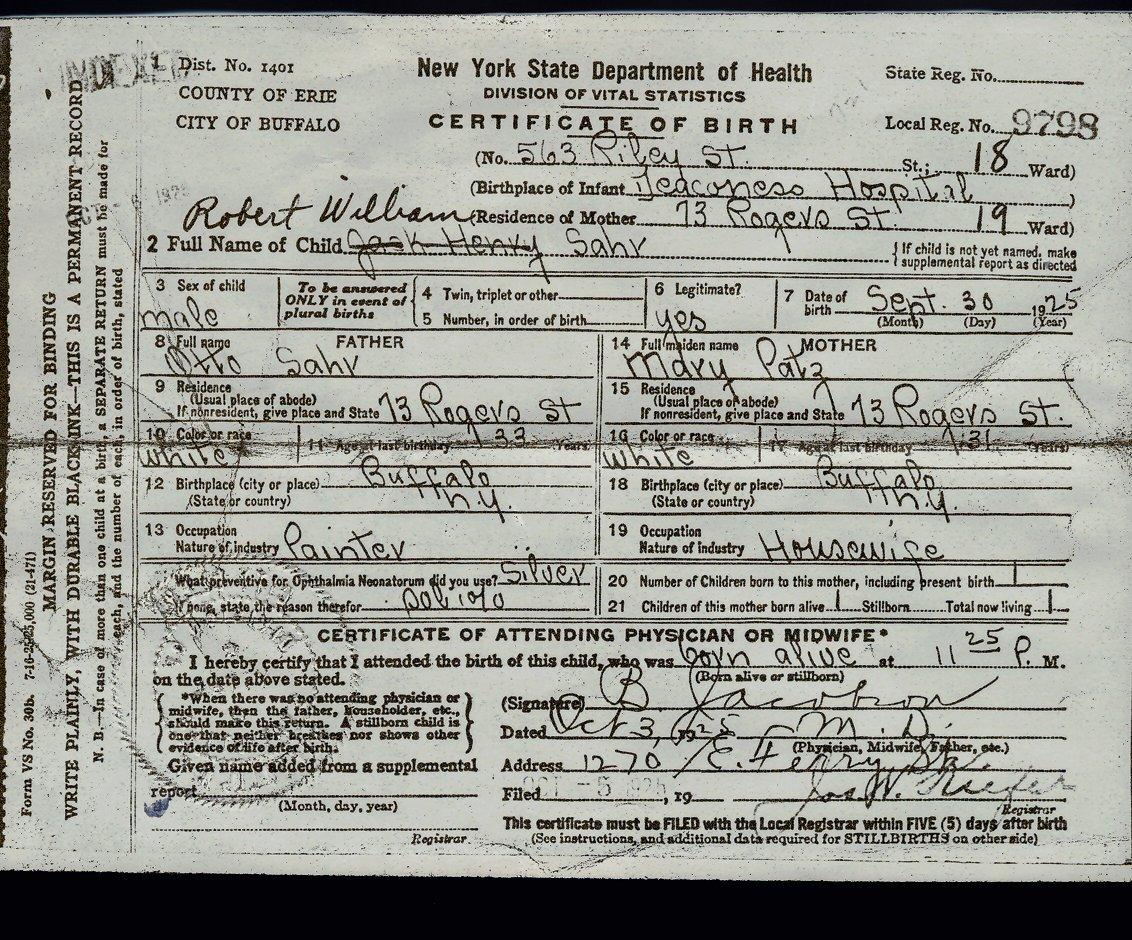 INDEXED
1 Dist. No. 1401
COUNTY OF ERIE
CITY OF BUFFALO
New York State Department of Health
DIVISION OF VITAL STATISTICS
CERTIFICATE OF BIRTH
State Reg. No.
Local Reg. No. 9798
(No. 563 Riley St. St.; 18 Ward)
(Birthplace of Infant Deaconess Hospital)
(Residence of Mother 73 Rogers St. 19 Ward)
Robert William
2 Full Name of Child Jack Henry Sahr
{ If child is not yet named, make
supplemental report as directed
3 Sex of child
male
To be answered
ONLY in event of
plural births
4 Twin, triplet or other
5 Number, in order of birth
6 Legitimate?
yes
7 Date of
birth Sept. 30 1925
(Month) (Day) (Year)
8 Full name FATHER
Otto Sahr
14 Full maiden name MOTHER
Mary Patz
9 Residence
(Usual place of abode)
If nonresident, give place and State 73 Rogers St
15 Residence
(Usual place of abode)
If nonresident, give place and State 73 Rogers St.
10 Color or race
white
11 Age at last birthday 33 Years
16 Color or race
white
17 Age at last birthday 31 (Years)
12 Birthplace (city or place) Buffalo
(State or country) N.Y.
18 Birthplace (city or place) Buffalo
(State or country) N.Y.
13 Occupation
Nature of industry Painter
19 Occupation
Nature of industry Housewife
What preventive for Ophthalmia Neonatorum did you use? Silver
If none, state the reason therefor
20 Number of Children born to this mother, including present birth 1
21 Children of this mother born alive 1 Stillborn Total now living 1
CERTIFICATE OF ATTENDING PHYSICIAN OR MIDWIFE*
I hereby certify that I attended the birth of this child, who was born alive at 11 25 P. M.
on the date above stated. (Born alive or stillborn)
*When there was no attending physician or
midwife, then the father, householder, etc.,
should make this return. A stillborn child is
one that neither breathes nor shows other
evidence of life after birth.
(Signature) B Jacobson
Dated Oct 3, 1925 M. D.
(Physician, Midwife, Father, etc.)
Address 1270 E. Ferry St.
Given name added from a supplemental
report
(Month, day, year)
Registrar
Filed OCT -5 1925, 19
Jos W.
Registrar
This certificate must be FILED with the Local Registrar within FIVE (5) days after birth
(See instructions, and additional data required for STILLBIRTHS on other side)
Form VS No. 30b. 7-16-25-25,000 (21-471)
MARGIN RESERVED FOR BINDING
WRITE PLAINLY, WITH DURABLE BLACK INK—THIS IS A PERMANENT RECORD
N. B.—In case of more than one child at a birth, a SEPARATE RETURN must be made for
each, and the number of each, in order of birth, stated